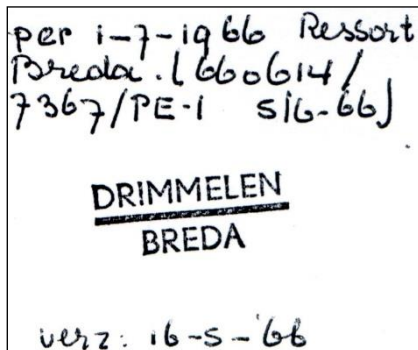 per 1-7-1966 Ressort
Breda. (660614/
7367/PE-1 516-66)
DRIMMELEN
BREDA
verz: 16-5-'66